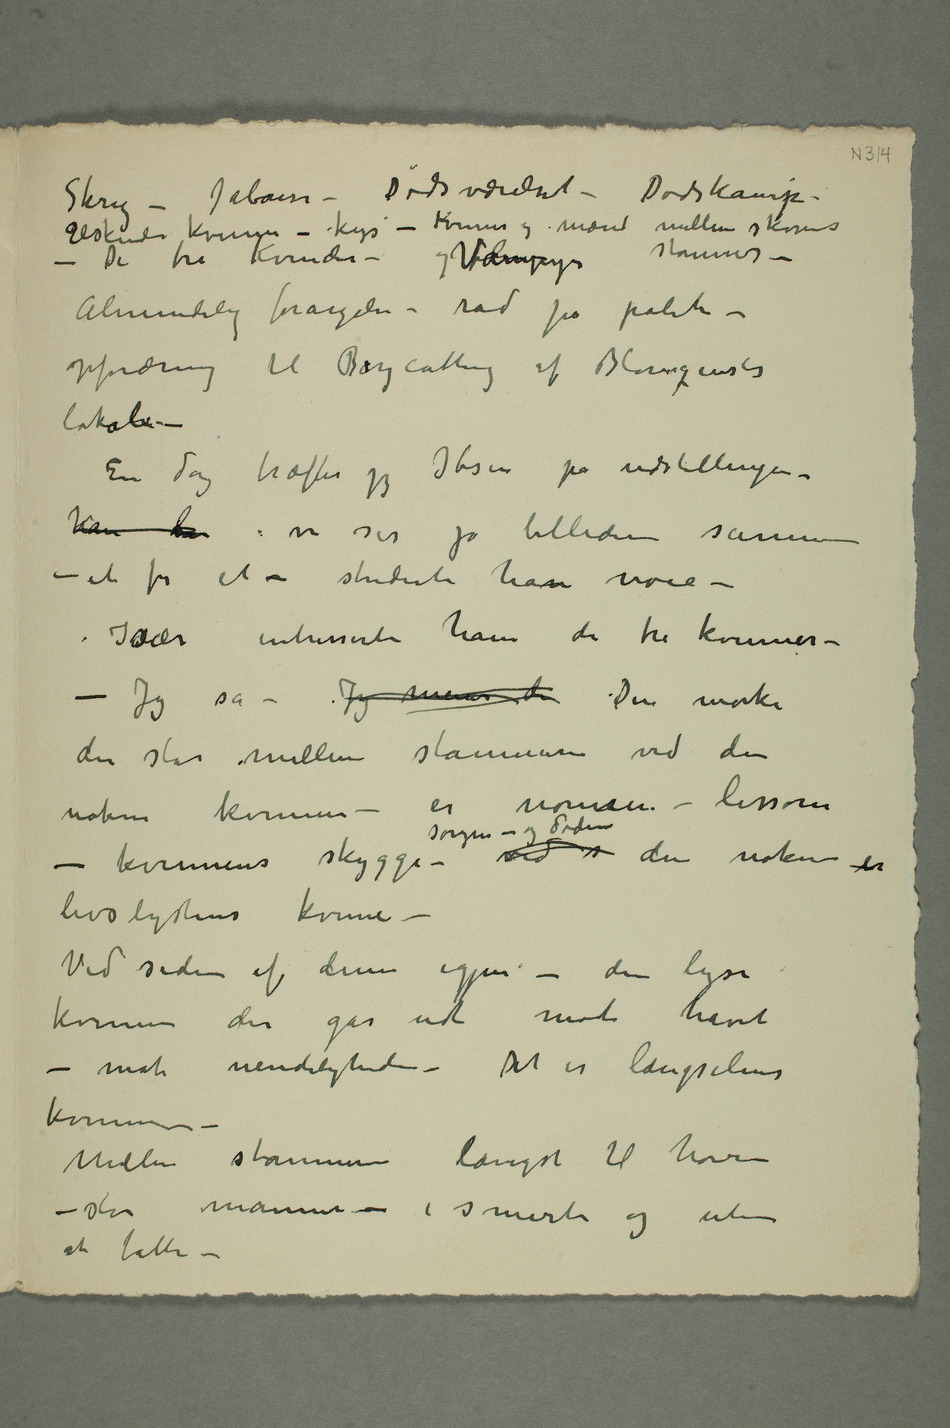 N314
Skrig – Jalousi – Dødsværelset – Dødskamp –
Elskende kvinne – kys – Kvinner og mænd mellem skovens
– De tre Kvinder – og Vampyr stammer –
Almindelig forargelse – råd på politi –
opfordring til Boycatting af Blomqvists
lokale –
En dag træffer jeg Ibsen på udstillingen –
Han be : vi ser på billedene sammen
– et for et – studerte han nøie –
Især intresserte ham de tre kvinner –
– Jeg sa – Jeg mener de Den mørke
der står mellem stammerne ved den
nøkne kvinnen – er nonnen – lissom
sorgen – og døden
– kvinnens skygge – ved s den nøkne er
livslystens kvinne –
Ved siden af denne igjen – den lyse
kvinne der går udt mode havet
– mot uendeligheden – Det er længselens
kvinne –
Mellem stammerne længst til høire
– står mannen – i smerte og uten
at fatte –